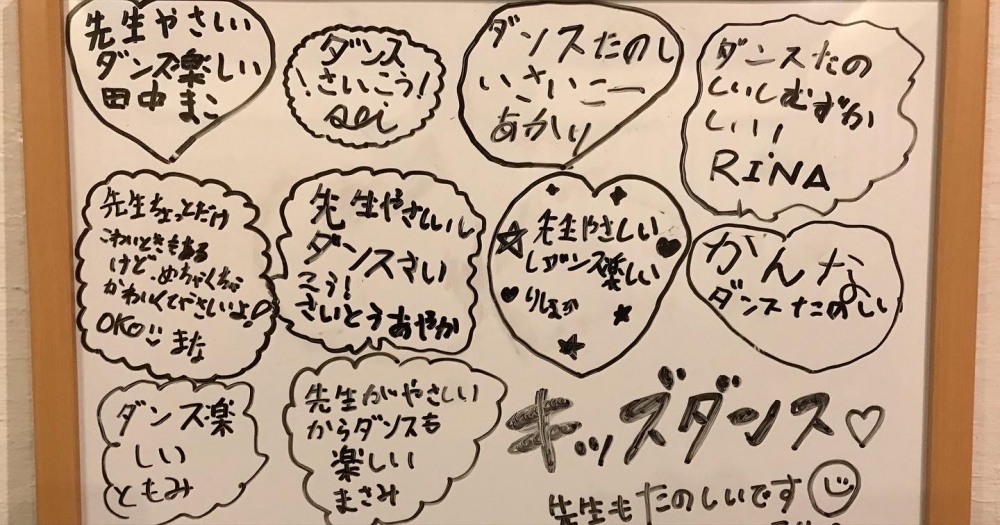 先生やさしい
ダンス楽しい
田中まこ
ダンス
さいこう!
aei
ダンスたのし
いさいこー
あかり
ダンスたの
しいしむずか
しい!
RiNA
先生ちょっとだけ
こわいときもある
けど、めちゃくちゃ
かわいくてやさしいよ!
OKO
まな
先生やさしいし
ダンスさい
こう!
さいとうあやか
先生やさしい
しダンス楽しい
りほか
かんな
ダンスたのしい
ダンス楽
しい
ともみ
先生がやさしい
からダンスも
楽しい
まさみ
キッズダンス♡
先生もたのしいです